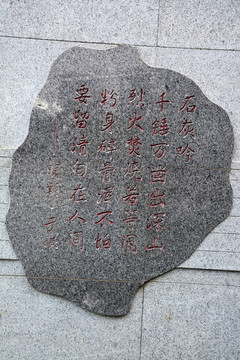 石灰吟
千锤万凿出深山
烈火焚烧若等闲
粉身碎骨浑不怕
要留清白在人间
于谦